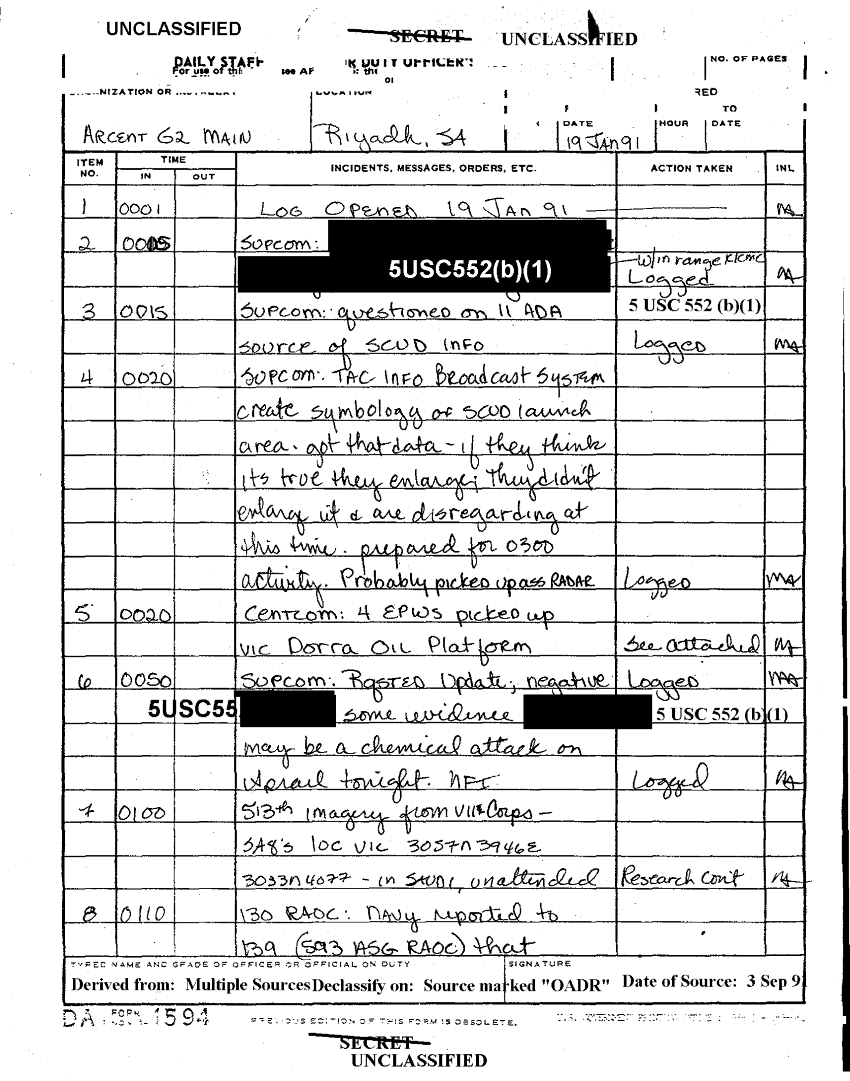 UNCLASSIFIED
SECRET
UNCLASSIFIED
DAILY STAFF
R DUTY OFFICER'S
For use of this
see AF
NO. OF PAGES
LOCATION
RED
TO
DATE HOUR DATE
ARCENT G2 MAIN Riyadh, SA 19 JAN 91
ITEM NO. TIME INCIDENTS, MESSAGES, ORDERS, ETC. ACTION TAKEN INL
IN OUT
1 0001 LOG OPENED 19 JAN 91 MA
2 0005 SUPCOM:
5USC552(b)(1) W/in range KKMC
Logged MA
3 0015 SUPCOM: questioned on 11 ADA 5 USC 552 (b)(1)
source of SCUD INFO Logged MA
4 0020 SUPCOM: TAC INFO Broadcast SYSTEM
create symbology of SCUD launch
area. got that data - if they think
its true they enlarge; They didn't
enlarg it & are disregarding at
this time. prepared for 0300
activity. Probably picked up ass RADAR Logged MA
5 0020 CENTCOM: 4 EPWS picked up
vic Dorra OIL Platform See attached MA
6 0050 SUPCOM: Update; negative Logged MA
5USC55 some evidence 5 USC 552 (b)(1)
may be a chemical attack on
Israil tonight. NFI Logged MA
7 0100 513th imagery from VII Corps -
SA8's loc vic 3057N 3946E
3033N 4077 - in SAUDI, unattended Research Con't MA
8 0110 130 RAOC: NAVY reported to
139 (593 ASG RAOC) that
TYPED NAME AND GRADE OF OFFICER OR OFFICIAL ON DUTY SIGNATURE
Derived from: Multiple Sources Declassify on: Source marked "OADR" Date of Source: 3 Sep 9
DA FORM 1594 PREVIOUS EDITION OF THIS FORM IS OBSOLETE.
SECRET
UNCLASSIFIED